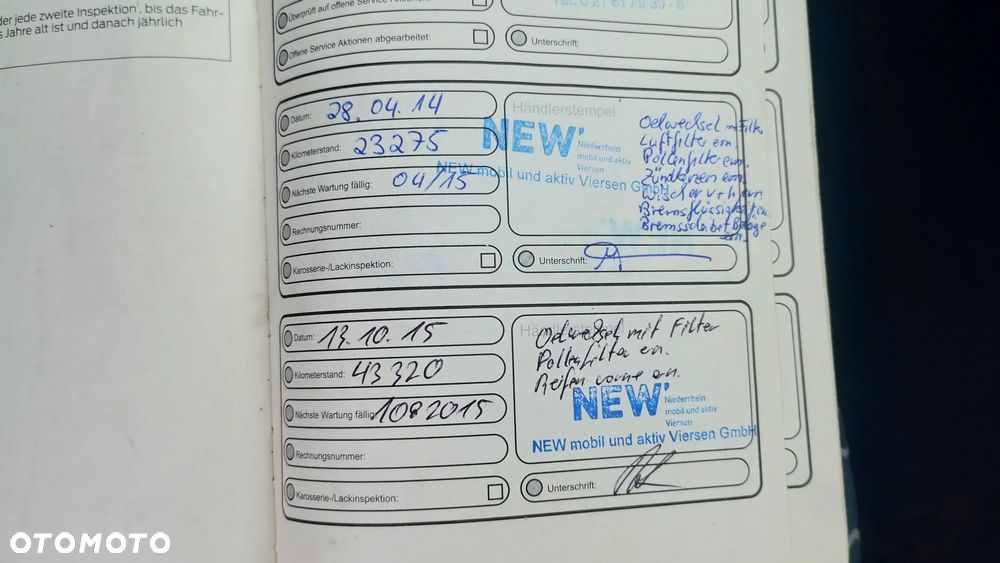 der jede zweite Inspektion¹, bis das Fahr-
s Jahre alt ist und danach jährlich
Überprüft auf offene Service
Offene Service Aktionen abgearbeitet:
Tel. 0 21 61 / 9 30 - 6
Unterschrift:
Datum: 28.04.14
Kilometerstand: 23275
Nächste Wartung fällig: 04/15
Rechnungsnummer:
Karosserie-/Lackinspektion:
Händlerstempel
NEW'
Niederrhein
mobil und aktiv
Viersen
NEW mobil und aktiv Viersen GmbH
Oelwechsel m Filter
Luftfilter ern.
Pollenfilter ern.
Zündkerzen ern.
Wischer v+h ern
Bremsflüssigkeit ern
Bremsscheibe+Beläge
ern.
Unterschrift:
Datum: 13.10.15
Kilometerstand: 43320
Nächste Wartung fällig: 10 2015
Rechnungsnummer:
Karosserie-/Lackinspektion:
Händlerstempel
Oelwechsel mit Filter
Pollenfilter ern.
Reifen vorne ern.
NEW'
Niederrhein
mobil und aktiv
Viersen
NEW mobil und aktiv Viersen GmbH
Unterschrift:
OTOMOTO